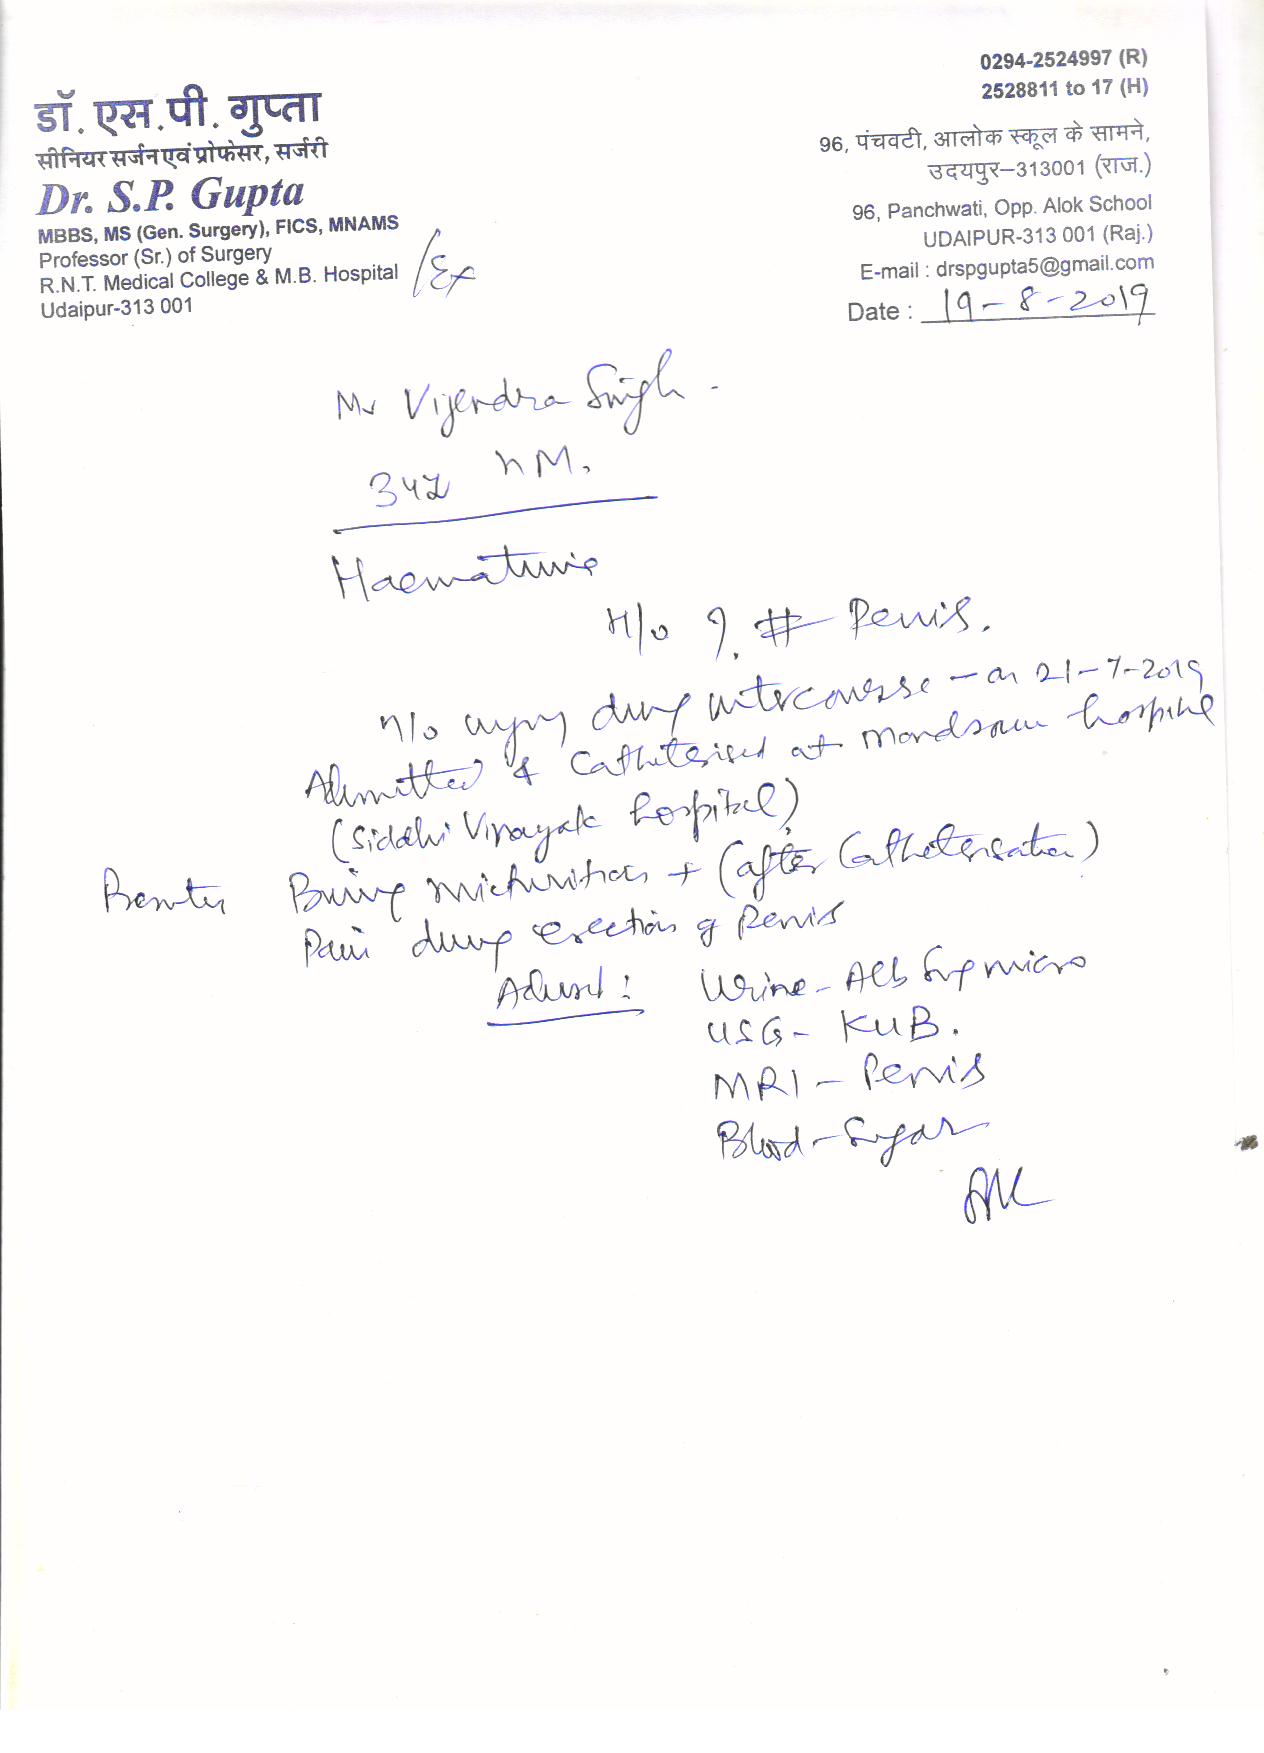 0294-2524997 (R)
2528811 to 17 (H)
डॉ. एस.पी. गुप्ता
सीनियर सर्जन एवं प्रोफेसर, सर्जरी
Dr. S.P. Gupta
MBBS, MS (Gen. Surgery), FICS, MNAMS
Professor (Sr.) of Surgery
R.N.T. Medical College & M.B. Hospital /Ex
Udaipur-313 001
96, पंचवटी, आलोक स्कूल के सामने,
उदयपुर–313001 (राज.)
96, Panchwati, Opp. Alok School
UDAIPUR-313 001 (Raj.)
E-mail : drspgupta5@gmail.com
Date : 19-8-2019
Mr Vijendra Singh
34y M.
Haematuria
H/o ? # Penis.
H/o injury during intercourse – on 21-7-2019
Admitted & Catheterised at Mandsaur hospital
(Siddhi Vinayak hospital)
Burning micturition + (after Catheterisation)
Pain during erection of penis
Advised : Urine – Alb Sug micro
USG – KUB.
MRI – Penis
Blood – Sugar